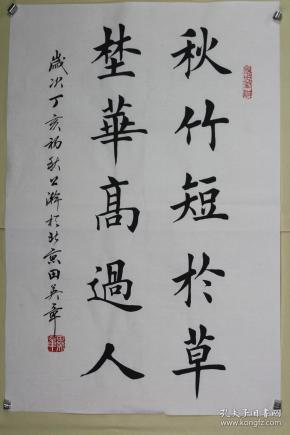 秋竹短於草
埜華高過人
歲次丁亥初秋公瀚於北京田英章
孔夫子旧书网